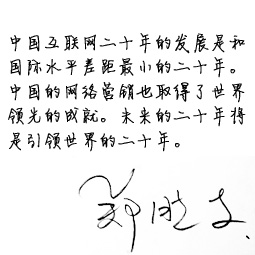 中国互联网二十年的发展是和
国际水平差距最小的二十年。
中国的网络营销也取得了世界
领先的成就。未来的二十年将
是引领世界的二十年。